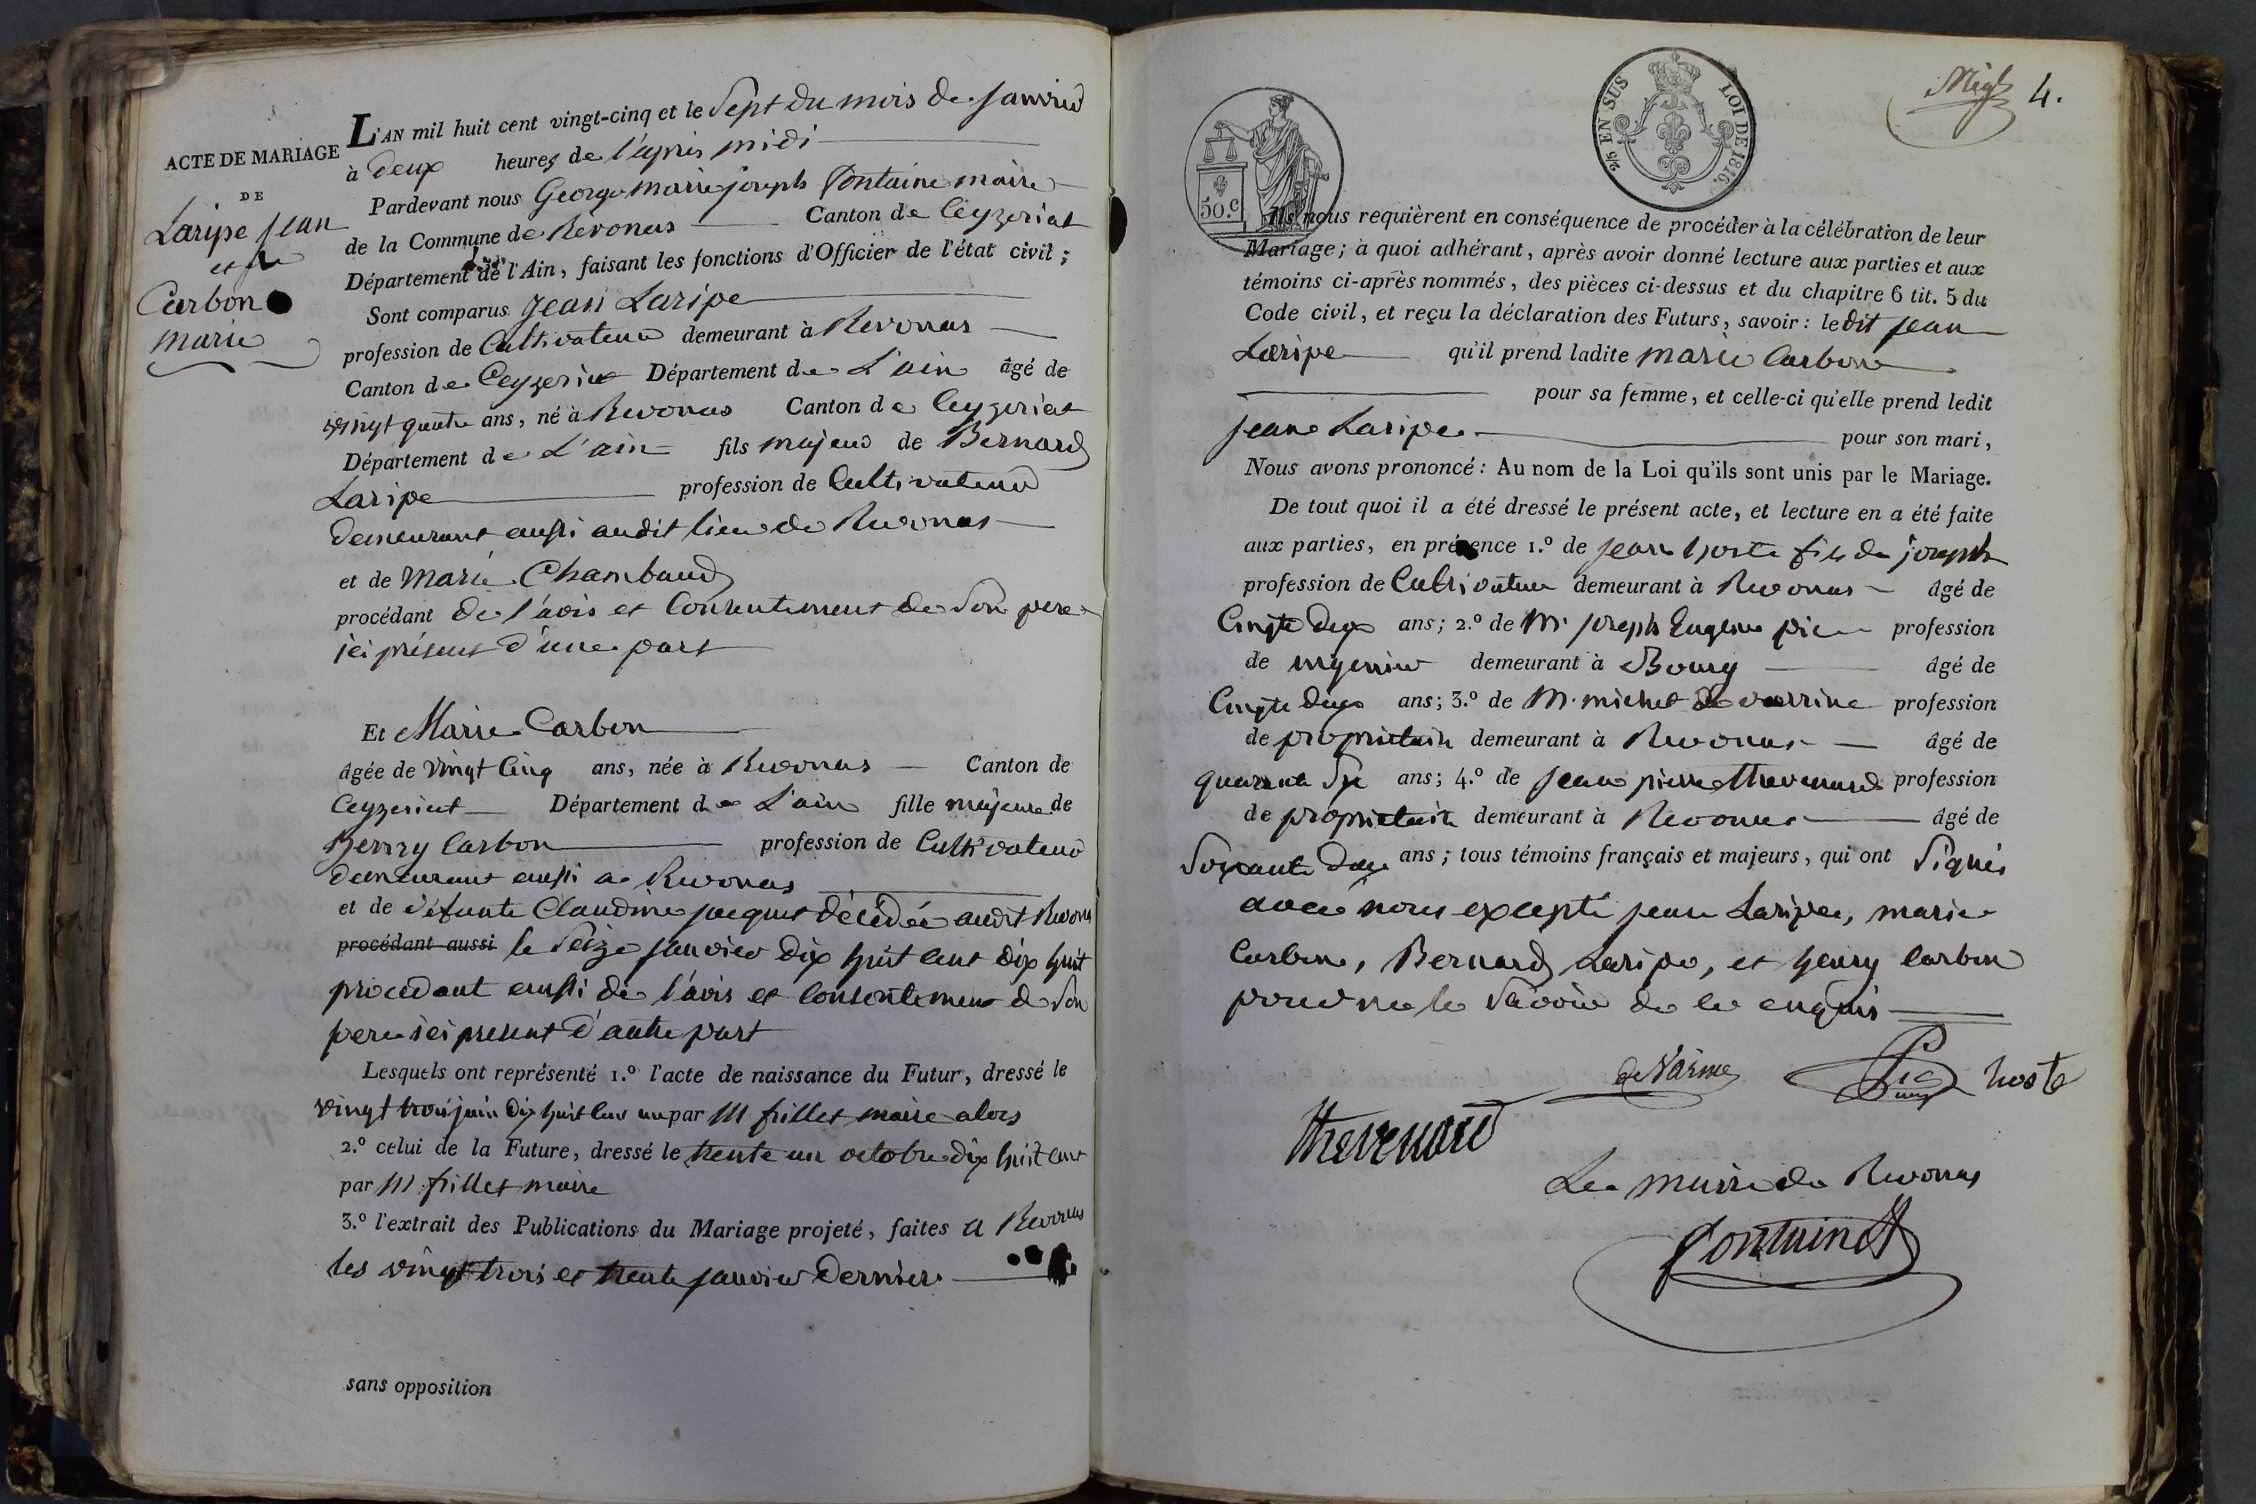 ACTE DE MARIAGE
DE
Laripe Jean
et
Carbon
marie
L'AN mil huit cent vingt-cinq et le Sept du mois de Janvier
à deux heures de l'apres midi
Pardevant nous George marie joseph fontaine maire
de la Commune de Revonas Canton de Ceyzeriat
Département de l'Ain, faisant les fonctions d'Officier de l'état civil;
Sont comparus Jean Laripe
profession de Cultivateur demeurant à Revonas
Canton de Ceyzeriat Département de L'ain âgé de
vingt quatre ans, né à Revonas Canton de Ceyzeriat
Département de L'ain fils majeur de Bernard
Laripe profession de Cultivateur
demeurant aussi audit lieu de Revonas
et de Marie Chambaud
procédant de l'avis et Consentement de Son pere
ici présent d'une part
Et Marie Carbon
âgée de vingt Cinq ans, née à Revonas Canton de
Ceyzeriat Département de L'ain fille majeure de
henry Carbon profession de Cultivateur
demeurant aussi a Revonas
et de défunte Claudine jacquet décédée audit Revonas
procédant aussi le Seize janvier dix huit cent dix huit
procedant aussi de l'avis et Consentement de Son
pere ici present d'autre part
Lesquels ont représenté 1.º l'acte de naissance du Futur, dressé le
vingt trois juin dix huit cent un par M frillet maire alors
2.º celui de la Future, dressé le trente un octobre dix huit cent
par M frillet maire
3.º l'extrait des Publications du Mariage projeté, faites a Revonas
les vingt trois et trente janvier dernier
sans opposition
4.
50.C
2/5 EN SUS LOI DE 1816.
Ils nous requièrent en conséquence de procéder à la célébration de leur
Mariage; à quoi adhérant, après avoir donné lecture aux parties et aux
témoins ci-après nommés, des pièces ci-dessus et du chapitre 6 tit. 5 du
Code civil, et reçu la déclaration des Futurs, savoir: ledit Jean
Laripe qu'il prend ladite marie Carbon
pour sa femme, et celle-ci qu'elle prend ledit
Jean Laripe pour son mari,
Nous avons prononcé: Au nom de la Loi qu'ils sont unis par le Mariage.
De tout quoi il a été dressé le présent acte, et lecture en a été faite
aux parties, en présence 1.º de jean hoste fils de joseph
profession de Cultivateur demeurant à Revonas âgé de
Cinqte deux ans; 2.º de Mr joseph Eugene pic profession
de demeurant à Bourg âgé de
Cinqte deux ans; 3.º de M. michel de varrine profession
de proprietaire demeurant à Revonas âgé de
quarante Six ans; 4.º de jean pierre thevenard profession
de proprietaire demeurant à Revonas âgé de
Soixante deux ans; tous témoins français et majeurs, qui ont Signés
avec nous excepté jean Laripe, marie
Carbon, Bernard Laripe, et henry Carbon
pour ne le Savoir de ce enquis
Pic hoste
thevenard
Le maire de Revonas
fontaine